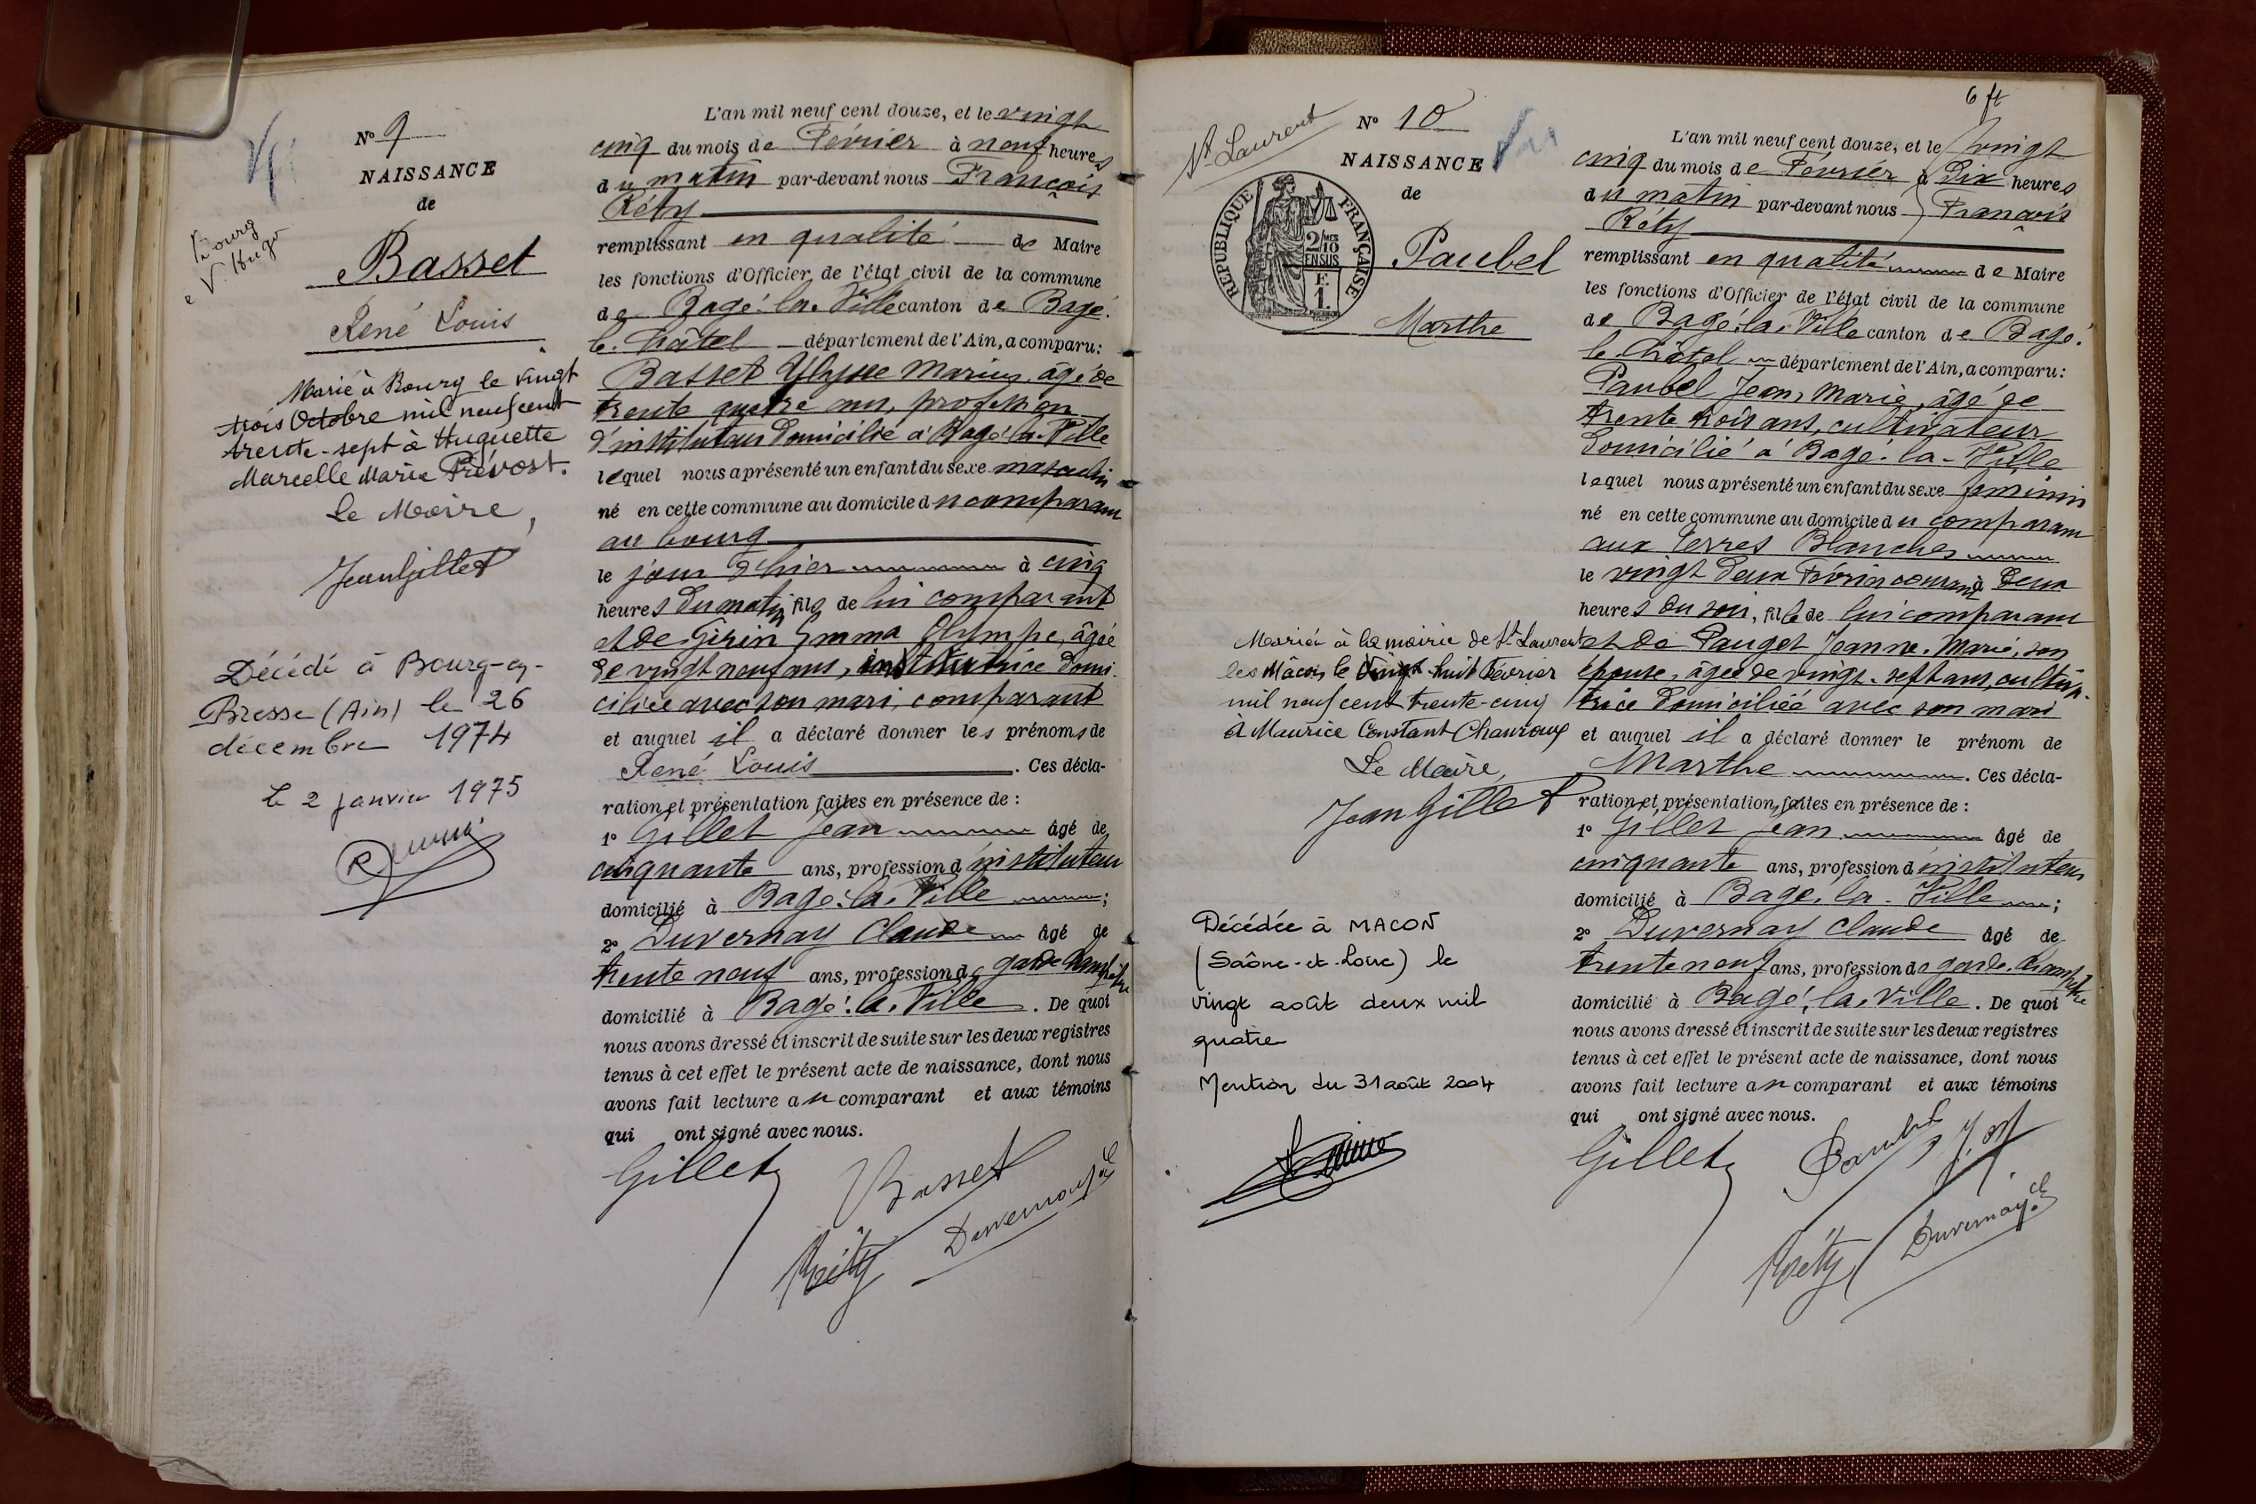 N° 9
NAISSANCE
de
Basset
René Louis
Bourg
V. Hugo
Marié à Bourg le vingt
trois Octobre mil neuf cent
trente-sept à Huguette
Marcelle Marie Prévost.
Le Maire,
Jean Gillet
Décédé à Bourg-en-
Bresse (Ain) le 26
décembre 1974
le 2 janvier 1975
L'an mil neuf cent douze, et le vingt
cinq du mois de Février à neuf heures
du matin par-devant nous François
Réty
remplissant en qualité de Maire
les fonctions d'Officier de l'état civil de la commune
de Bagé-la-Ville canton de Bagé-
le-Châtel département de l'Ain, a comparu:
Basset Ulysse Marius, âgé de
trente quatre ans, profession
d'instituteur domicilié à Bagé-la-Ville
lequel nous a présenté un enfant du sexe masculin
né en cette commune au domicile du comparant
au bourg
le jour d'hier à cinq
heures du matin, fils de lui comparant
et de Girin Emma Olympe, âgée
de vingt neuf ans, institutrice domi-
ciliée avec son mari, comparant
et auquel il a déclaré donner les prénoms de
René Louis. Ces décla-
ration et présentation faites en présence de :
1° Gillet Jean âgé de
cinquante ans, profession d'instituteur
domicilié à Bagé-la-Ville ;
2° Duvernay Claude âgé de
trente neuf ans, profession de garde champêtre
domicilié à Bagé-la-Ville. De quoi
nous avons dressé et inscrit de suite sur les deux registres
tenus à cet effet le présent acte de naissance, dont nous
avons fait lecture au comparant et aux témoins
qui ont signé avec nous.
Gillet Basset
Réty Duvernay Cl
6 ft
St Laurent
N° 10
NAISSANCE
de
Paubel
Marthe
RÉPUBLIQUE FRANÇAISE
2/10 EN SUS
Mariée à la mairie de St-Laurent
les Mâcon le vingt-huit Février
mil neuf cent trente-cinq
à Maurice Constant Chauroux
Le Maire,
Jean Gillet
Décédée à MACON
(Saône-et-Loire) le
vingt août deux mil
quatre
Mention du 31 août 2004
L'an mil neuf cent douze, et le vingt
cinq du mois de Février à dix heures
du matin par-devant nous François
Réty
remplissant en qualité de Maire
les fonctions d'Officier de l'état civil de la commune
de Bagé-la-Ville canton de Bagé-
le-Châtel département de l'Ain, a comparu:
Paubel Jean, Marie, âgé de
trente trois ans, cultivateur
domicilié à Bagé-la-Ville
lequel nous a présenté un enfant du sexe féminin
né en cette commune au domicile du comparant
aux Terres Blanches
le vingt deux Février courant à deux
heures du soir, fille de lui comparant
et de Pauget Jeanne, Marie, son
épouse, âgée de vingt-sept ans, cultiva-
trice domiciliée avec son mari
et auquel il a déclaré donner le prénom de
Marthe. Ces décla-
ration et présentation faites en présence de :
1° Gillet Jean âgé de
cinquante ans, profession d'instituteur
domicilié à Bagé-la-Ville ;
2° Duvernay Claude âgé de
trente neuf ans, profession de garde-champêtre
domicilié à Bagé-la-Ville. De quoi
nous avons dressé et inscrit de suite sur les deux registres
tenus à cet effet le présent acte de naissance, dont nous
avons fait lecture au comparant et aux témoins
qui ont signé avec nous.
Gillet Paubel
Réty Duvernay Cl